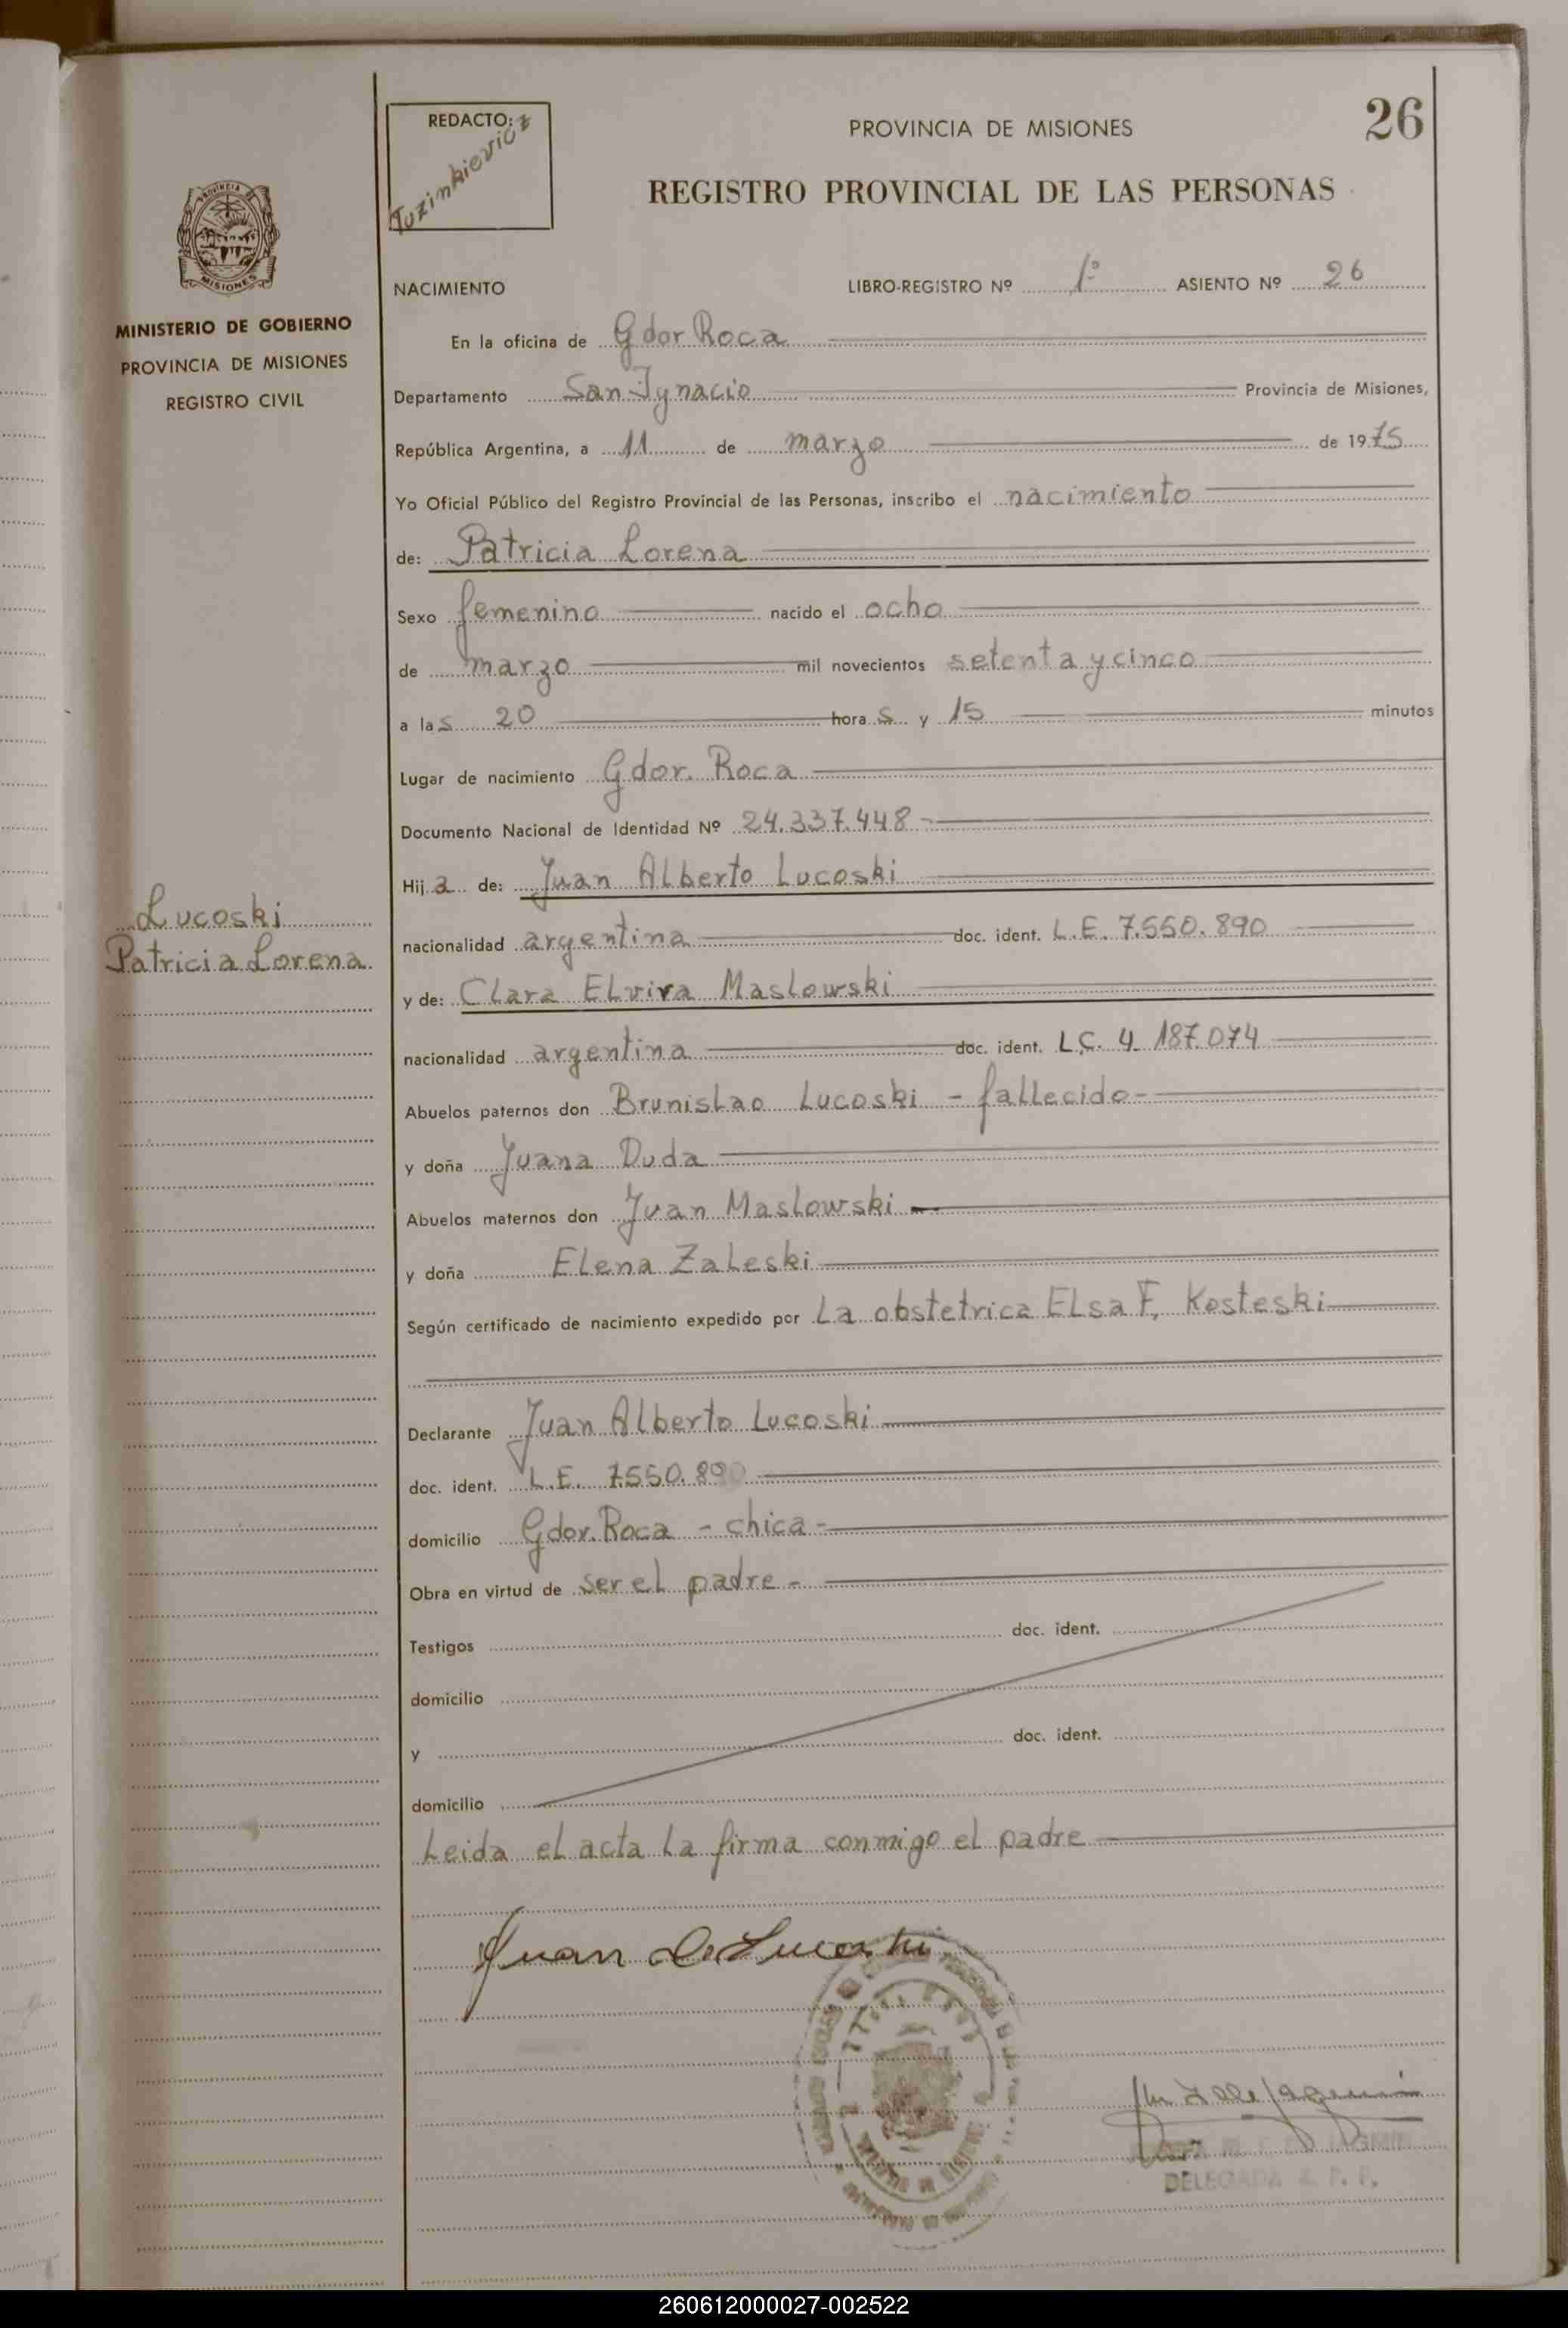 26
REDACTO:
Tuzinkievicz
PROVINCIA DE MISIONES
REGISTRO PROVINCIAL DE LAS PERSONAS
MISIONES
MINISTERIO DE GOBIERNO
PROVINCIA DE MISIONES
REGISTRO CIVIL
NACIMIENTO LIBRO-REGISTRO Nº 1º ASIENTO Nº 26
En la oficina de Gdor Roca
Departamento San Ignacio Provincia de Misiones,
República Argentina, a 11 de marzo de 1975
Yo Oficial Público del Registro Provincial de las Personas, inscribo el nacimiento
de: Patricia Lorena
Sexo femenino nacido el ocho
de marzo mil novecientos setenta y cinco
a las 20 horas y 15 minutos
Lugar de nacimiento Gdor. Roca
Documento Nacional de Identidad Nº 24.337.448
Hija de: Juan Alberto Lucoski
Lucoski
Patricia Lorena
nacionalidad argentina doc. ident. L.E. 7.550.890
y de: Clara Elvira Maslowski
nacionalidad argentina doc. ident. L.C. 4.187.074
Abuelos paternos don Brunislao Lucoski - fallecido-
y doña Juana Duda
Abuelos maternos don Juan Maslowski
y doña Elena Zaleski
Según certificado de nacimiento expedido por La obstetrica Elsa F. Kosteski
Declarante Juan Alberto Lucoski
doc. ident. L.E. 7.550.890
domicilio Gdor. Roca - chica-
Obra en virtud de ser el padre -
Testigos doc. ident.
domicilio
y doc. ident.
domicilio
Leida el acta la firma conmigo el padre
Juan A. Lucoski
DELEGADA R. P. P.
260612000027-002522